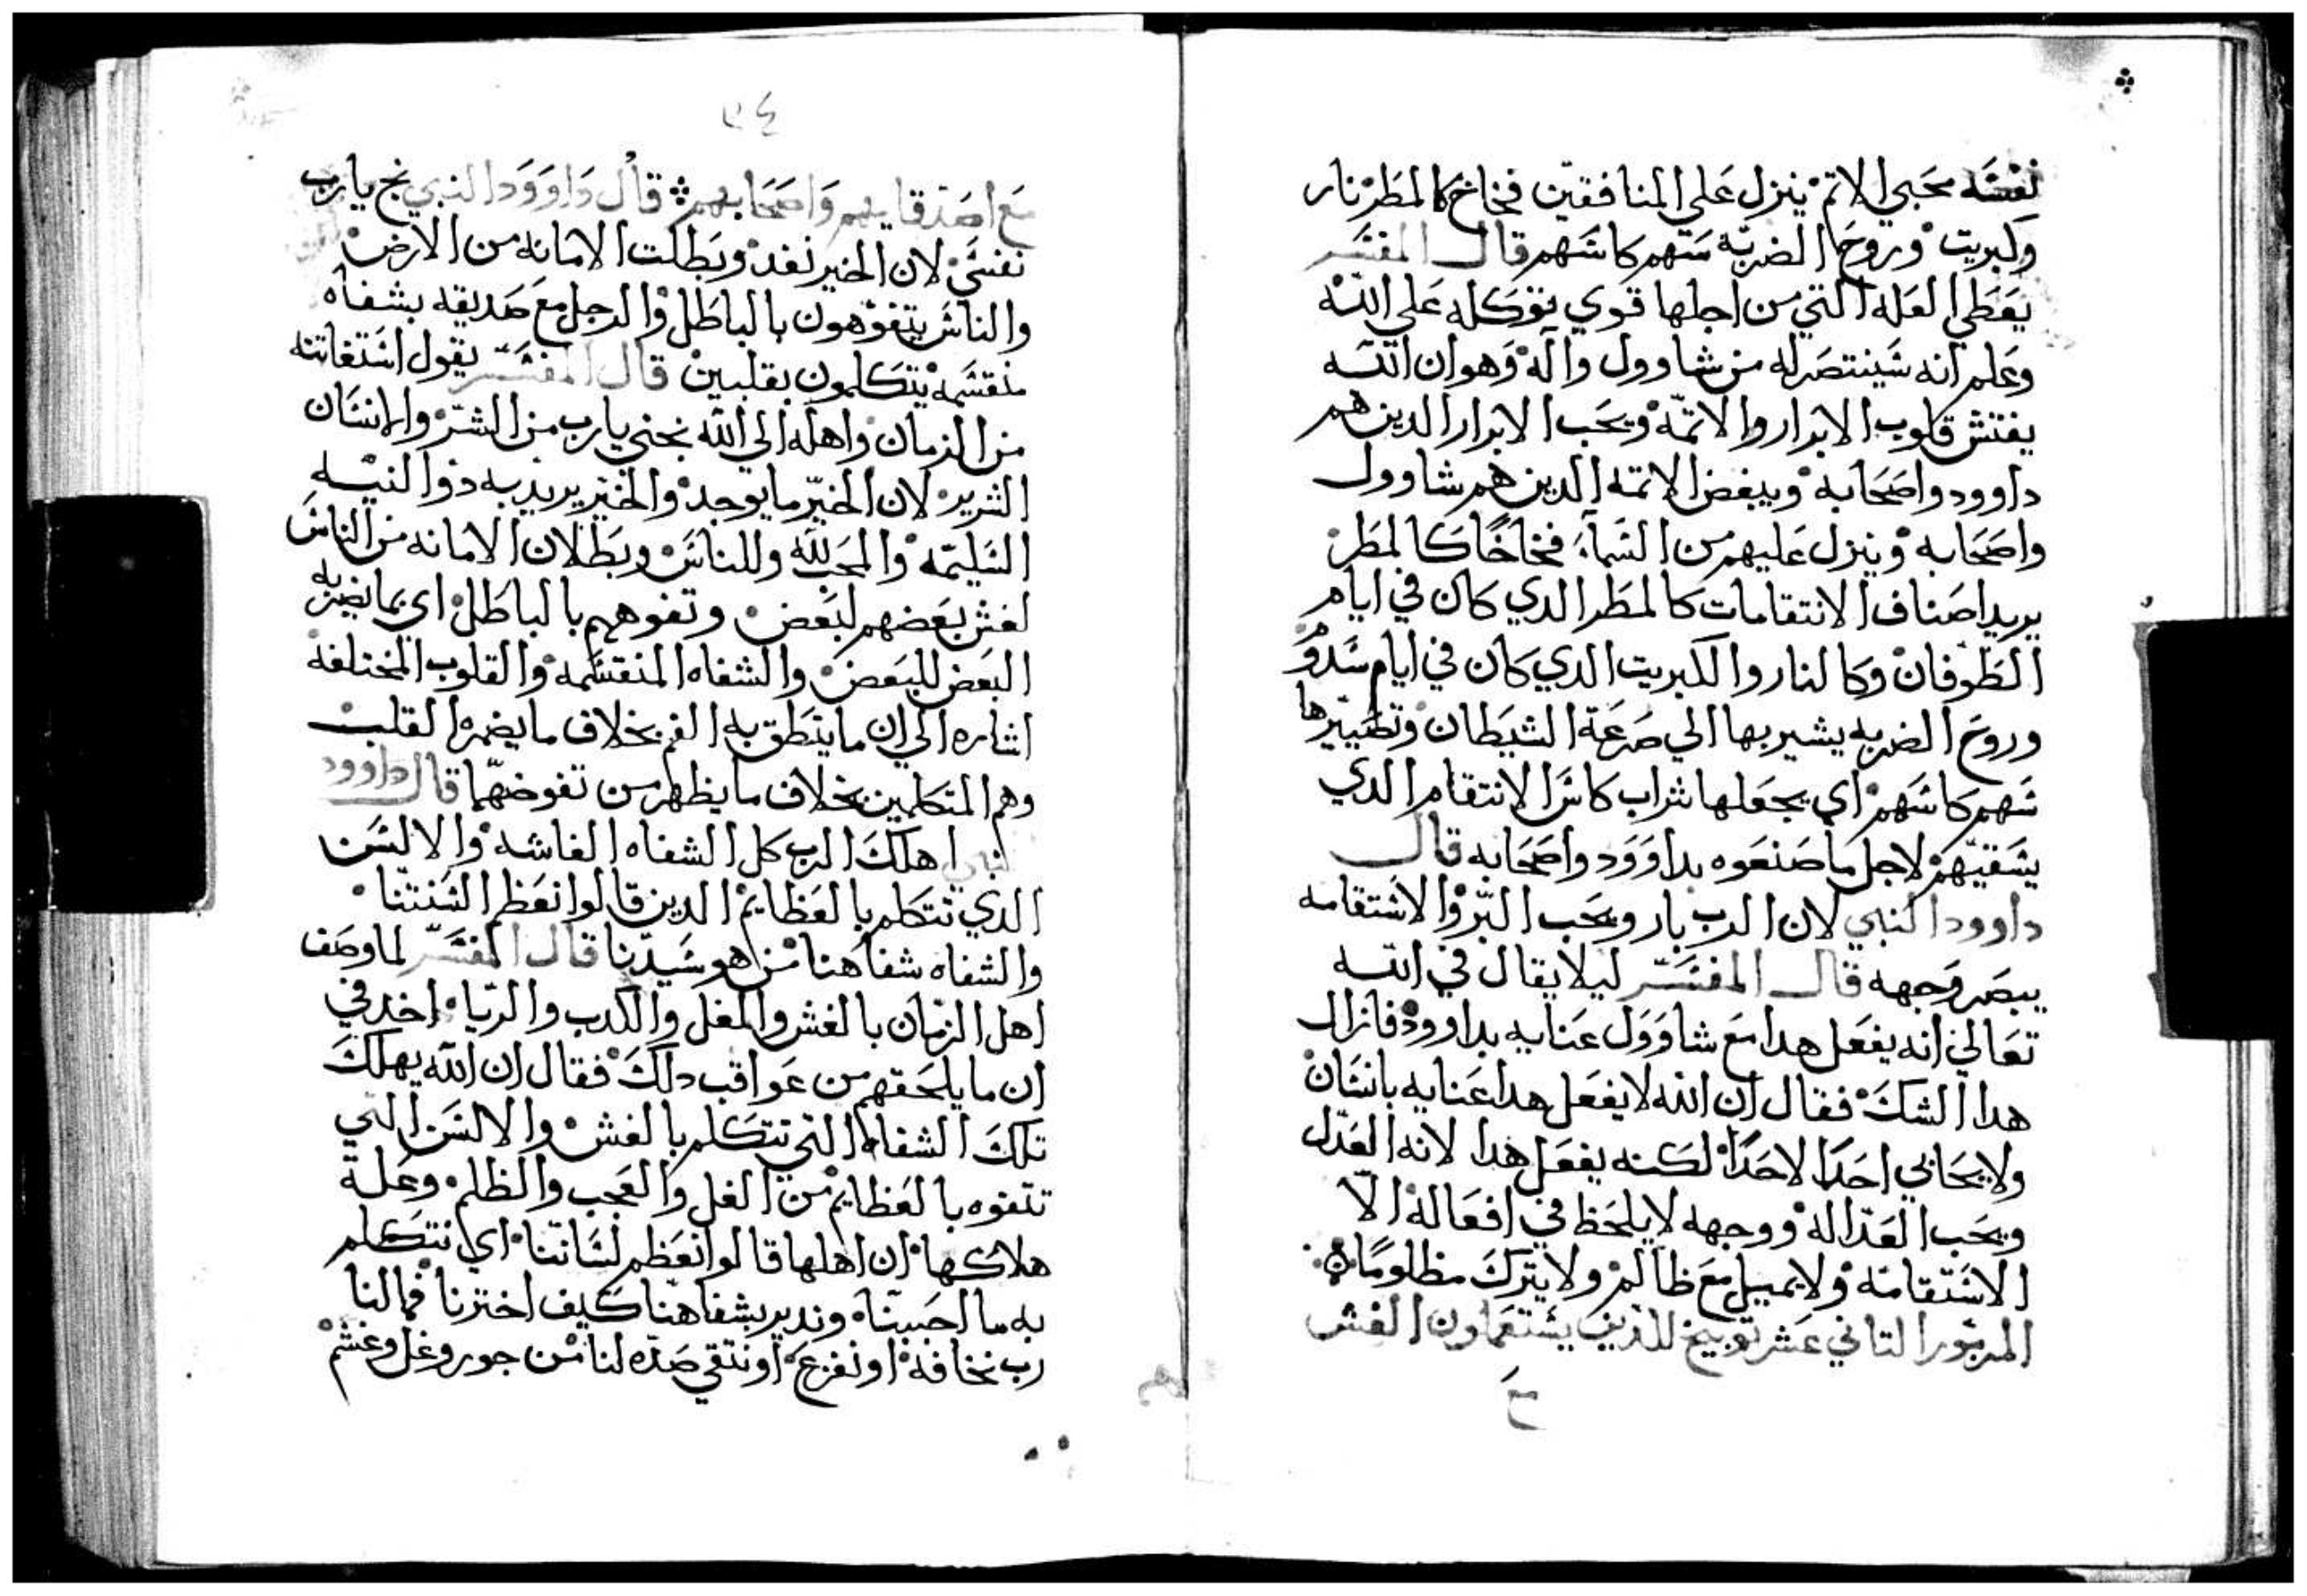 نفسه محبي الاتم ينزل علي المنافقين فخاخ كالمطر نار
وكبريت وروح الضربه سهم كاسهم قال المفسر
يعطي العله التي من اجلها قوي توكله علي الله
وعلم انه سينتصر له من شاوول واله وهو ان الله
يفتش قلوب الابرار والاتمه ويحب الابرار الدين هم
داوود واصحابه ويبغض الاتمه الدين هم شاوول
واصحابه وينزل عليهم من السماء فخاخا كالمطر
يريد اصناف الانتقامات كالمطر الدي كان في ايام
الطوفان وكالنار والكبريت الدي كان في ايام سدوم
وروح الضربه يشير بها الي صرعة الشيطان وتصييرها
سهم كاسهم اي يجعلها شراب كاس الانتقام الدي
يسقيهم لاجل ما صنعوه بداوود واصحابه قال
داوود النبي لان الرب بار ويحب البر والاستقامه
يبصر وجهه قال المفسر ليلا يقال في الله
تعالي انه يفعل هدا مع شاوول عنايه بداوود فازال
هدا الشك فقال ان الله لا يفعل هدا عنايه بانسان
ولا يحابي احدا لاحدا لكنه يفعل هدا لانه العدل
ويحب العداله ووجهه لا يلحظ في افعاله الا
الاستقامه ولا يميل مع ظالم ولا يترك مظلوما
المزمور التاني عشر توبيخ للذين يستعملون الغش
مع
٣٤
مع اصدقايهم واصحابهم قال داوود النبي نج يارب
نفسي لان الخير نفد وبطلت الامانه من الارض
والناس يتفوهون بالباطل والرجل مع صديقه بشفاه
منقسمه يتكلمون بقلبين قال المفسر يقول استغاتته
من الزمان واهله الي الله نجني يارب من الشر والانسان
الشرير لان الخير ما يوجد والخير يريد به ذو النيه
السليمه والمحب لله وللناس وبطلان الامانه من الناس
لغش بعضهم لبعض وتفوههم بالباطل اي بما يضر به
البعض للبعض والشفاه المنقسمه والقلوب المختلفه
اشاره الي ان ما ينطق به الفم بخلاف ما يضمره القلب
وهم المتكلمين بخلاف ما يظهر من تفوضهما قال داوود
النبي اهلك الرب كل الشفاه الغاشه والالسن
الدي تتكلم بالعظايم الدين قالوا نعظم السنتنا
والشفاه شفاهنا من هو سيدنا قال المفسر لما وصف
اهل الزمان بالغش والغل والكدب والريا اخد في
ان ما يلحقهم من عواقب دلك فقال ان الله يهلك
تلك الشفاه التي تتكلم بالغش والالسن التي
تتفوه بالعظايم من الغل والعجب والظلم وعلة
هلاكها ان اهلها قالوا نعظم لساننا اي نتكلم
به ما احببنا وندير بشفاهنا كيف اخترنا فما لنا
رب نخافه او نفزع او نتقي صده لنا من جور وغل وغشم